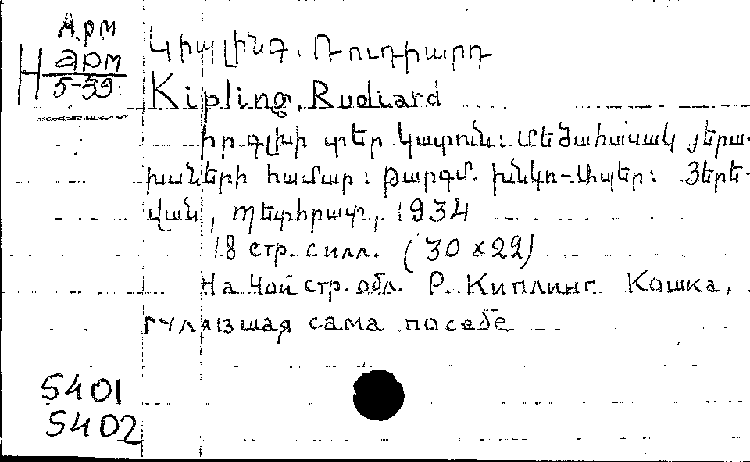 Арм
Н арм
5-59
Կիպլինգ. Ռուդիարդ
Kipling, Rudiard
Իր գլխի տեր կատուն: Մեծահասակ յերա-
խաների համար: Թարգմ. Խնկո-Ապեր: Յերե-
վան, Պետհրատ, 1934
18 стр. с илл. (30x22)
На 4ой стр. обл. Р. Киплинг Кошка,
гулявшая сама по себе
5401
5402